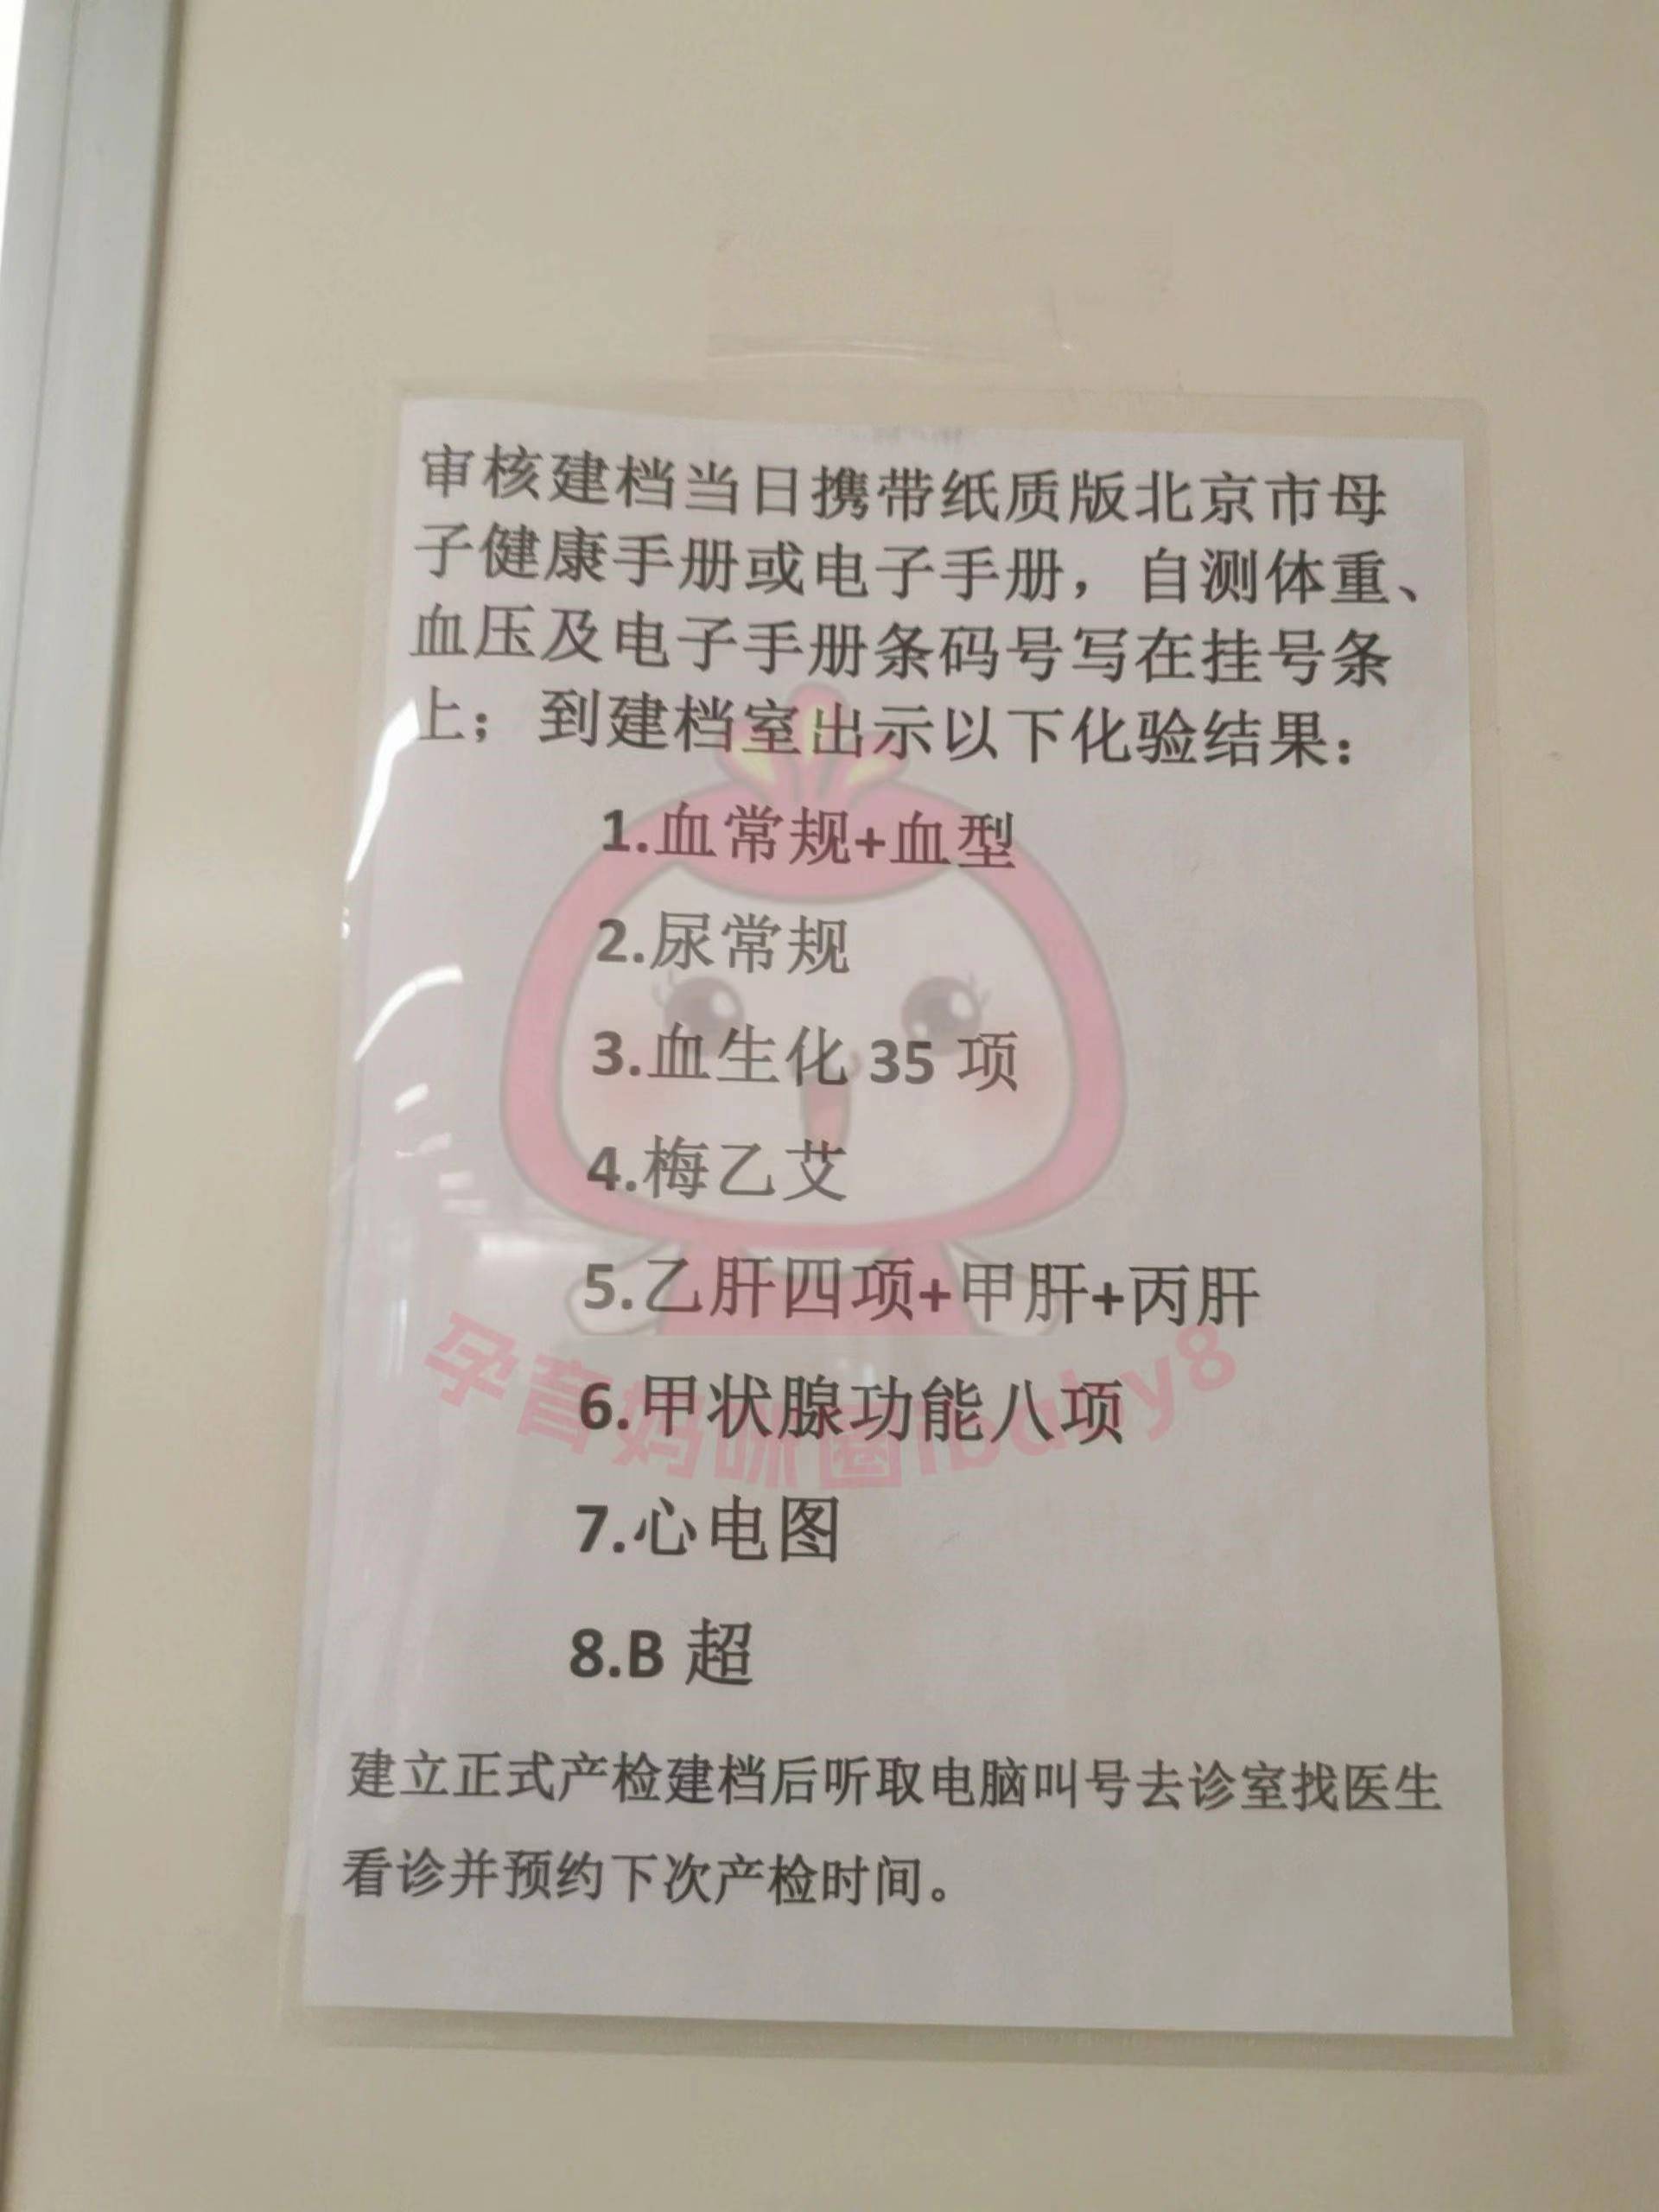 审核建档当日携带纸质版北京市母
子健康手册或电子手册，自测体重、
血压及电子手册条码号写在挂号条
上；到建档室出示以下化验结果：
1.血常规+血型
2.尿常规
3.血生化 35 项
4.梅乙艾
5.乙肝四项+甲肝+丙肝
6.甲状腺功能八项
7.心电图
8.B 超
建立正式产检建档后听取电脑叫号去诊室找医生
看诊并预约下次产检时间。
孕育妈咪圈ibaby8